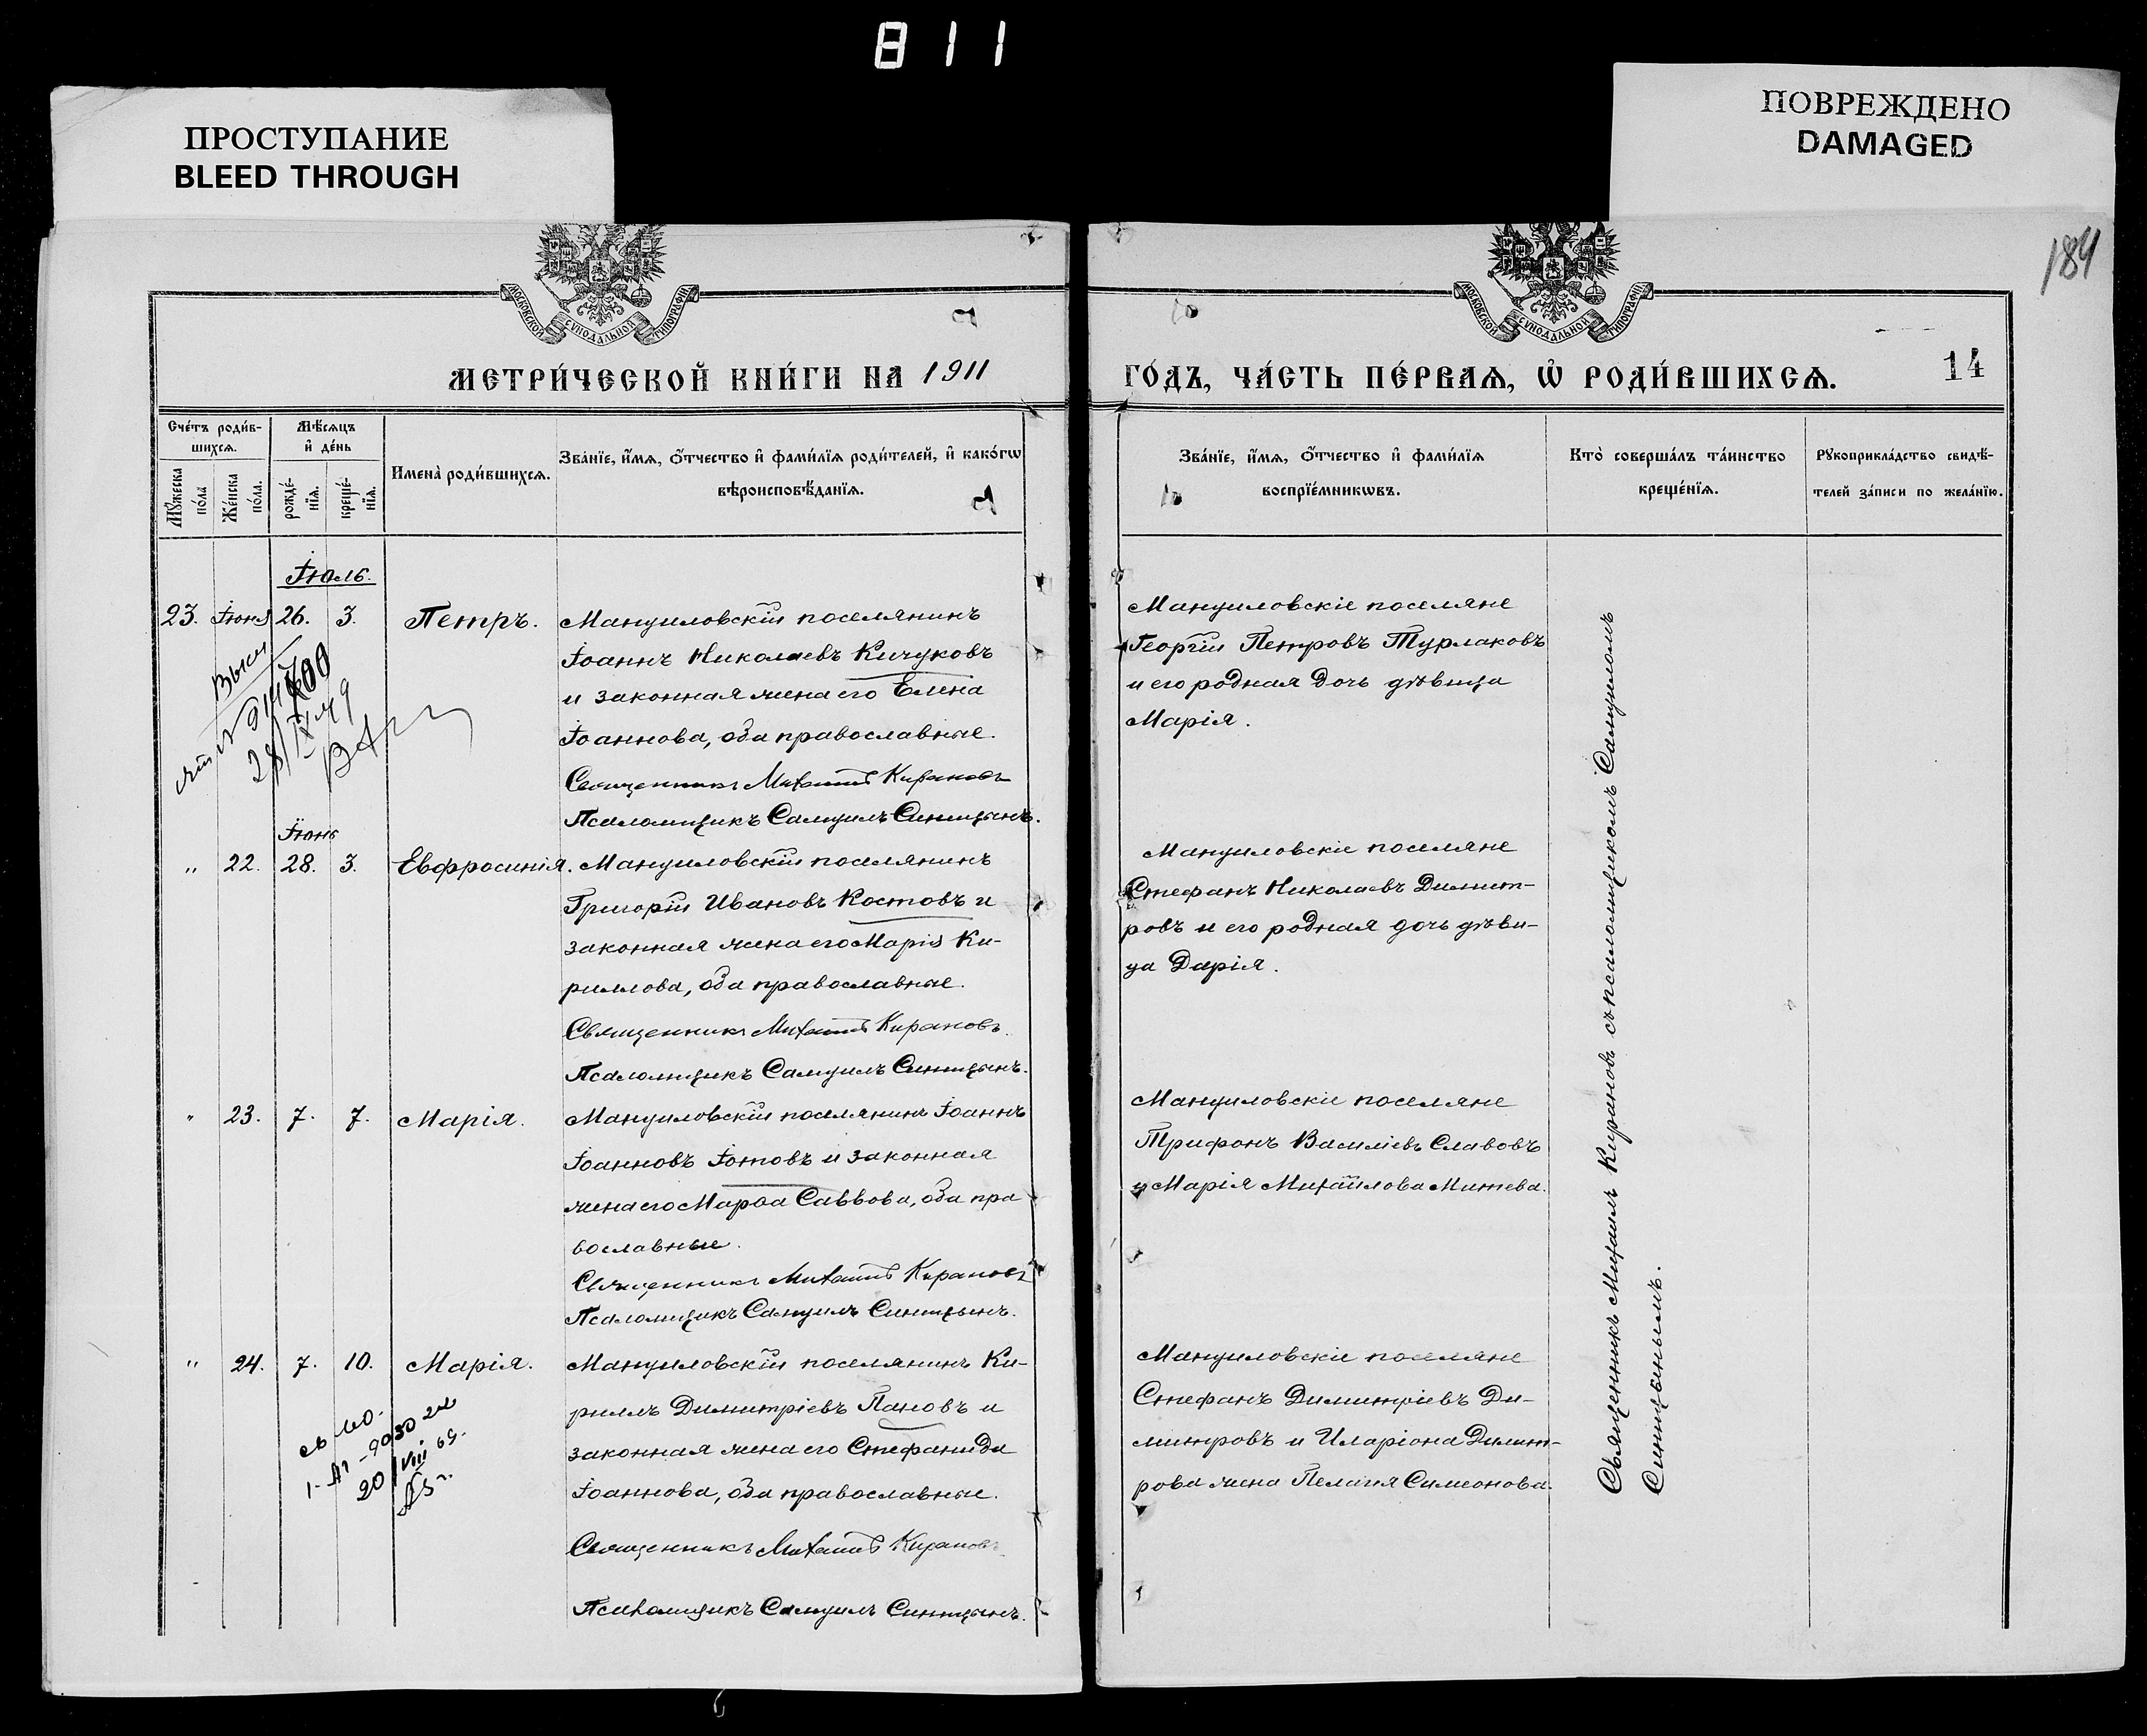 811
ПРОСТУПАНИЕ
BLEED THROUGH
ПОВРЕЖДЕНО
DAMAGED
184
МОСКОВСКОЙ СУНОДАЛЬНОЙ ТИПОГРАФІИ
МОСКОВСКОЙ СУНОДАЛЬНОЙ ТИПОГРАФІИ
МЕТРИ́ЧЕСКОЙ КНИ́ГИ НА 1911
ГО́ДЪ, ЧА́СТЬ ПЕ́РВАѦ, Ѡ҆ РОДИ́ВШИХСѦ.
14
Сче́тъ роди́в-
шихсѧ.
Мѣ́сѧцъ
и҆ де́нь
Мꙋ́жеска
по́ла
Же́нска
по́ла.
рожде́-
нїѧ.
креще́-
нїѧ.
Имена̀ роди́вшихсѧ.
Зва́нїе, и҆́мѧ, о҆́тчество и҆ фами́лїѧ роди́телей, и҆ како́гѡ
вѣроисповѣ́данїѧ.
Зва́нїе, и҆́мѧ, о҆́тчество и҆ фами́лїѧ
воспрїе́мникѡвъ.
Кто̀ соверша́лъ та́инство
креще́нїѧ.
Рꙋкоприкла́дство свидѣ́-
телей за́писи по жела́нїю.
Іюль.
23. Іюня 26. 3. Петръ.
Мануиловскій поселянинъ
Іоаннъ Николаевъ Кичуковъ
и законная жена его Елена
Іоаннова, оба православные.
Священникъ Михаилъ Кирановъ
Псаломщикъ Самуилъ Синицынъ.
Мануиловскіе поселяне
Георгій Петровъ Турлаковъ
и его родная дочь дѣвица
Марія.
Іюнь
" 22. 28. 3. Евфросинія.
Мануиловскій поселянинъ
Григорій Ивановъ Костовъ и
законная жена его Марія Ки-
риллова, оба православные.
Священникъ Михаилъ Кирановъ.
Псаломщикъ Самуилъ Синицынъ.
Мануиловскіе поселяне
Стефанъ Николаевъ Димит-
ровъ и его родная дочь дѣви-
ца Дарія.
" 23. 7. 7. Марія.
Мануиловскій поселянинъ Іоаннъ
Іоанновъ Іотовъ и законная
жена его Марѳа Саввова, оба пра
вославные.
Священникъ Михаилъ Кирановъ
Псаломщикъ Самуилъ Синицынъ.
Мануиловскіе поселяне
Трифонъ Василіевъ Славовъ
и Марія Михайлова Митева.
" 24. 7. 10. Марія.
20/VIII 69.
Мануиловскій поселянинъ Ки-
риллъ Димитріевъ Пановъ и
законная жена его Стефанида
Іоаннова, оба православные.
Священникъ Михаилъ Кирановъ.
Псаломщикъ Самуилъ Синицынъ.
Мануиловскіе поселяне
Стефанъ Димитріевъ Ди-
митровъ и Иларіона Димит-
рова жена Пелагія Симеонова.
Священникъ Михаилъ Кирановъ съ псаломщикомъ Самуиломъ
Синицынымъ.